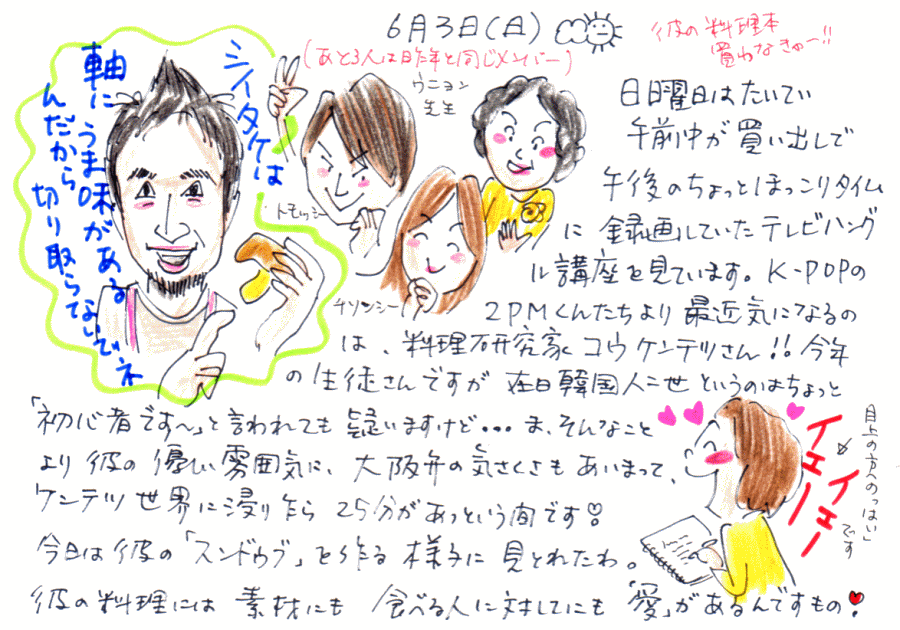 6月3日(日)
(あと3人は昨年と同じメンバー)
彼の料理本
買わなきゃー!!
シイタケは
軸にうま味がある
んだから切り取らないでネ
ウニョン
先生
トモッシー
チソンシー
日日曜日はたいてい
午前中が買い出しで
午後のちょっとほっこりタイム
に録画していたテレビハング
ル講座を見ています。K-POPの
2PMくんたちより最近気になるの
は、料理研究家コウケンテツさん!!今年
の生徒さんですが在日韓国人二世というのはちょっと
「初心者です〜」と言われても疑いますけど…ま、そんなこと
より彼の優しい雰囲気に、大阪弁の気さくさもあいまって、
ケンテツ世界に浸り乍ら25分があっという間です!
今日は彼の「スンドゥブ」を作る様子に見とれたわ。
彼の料理には素材にも食べる人に対してにも「愛」があるんですもの!
イェー
イェー
目上の方への「はい」
です